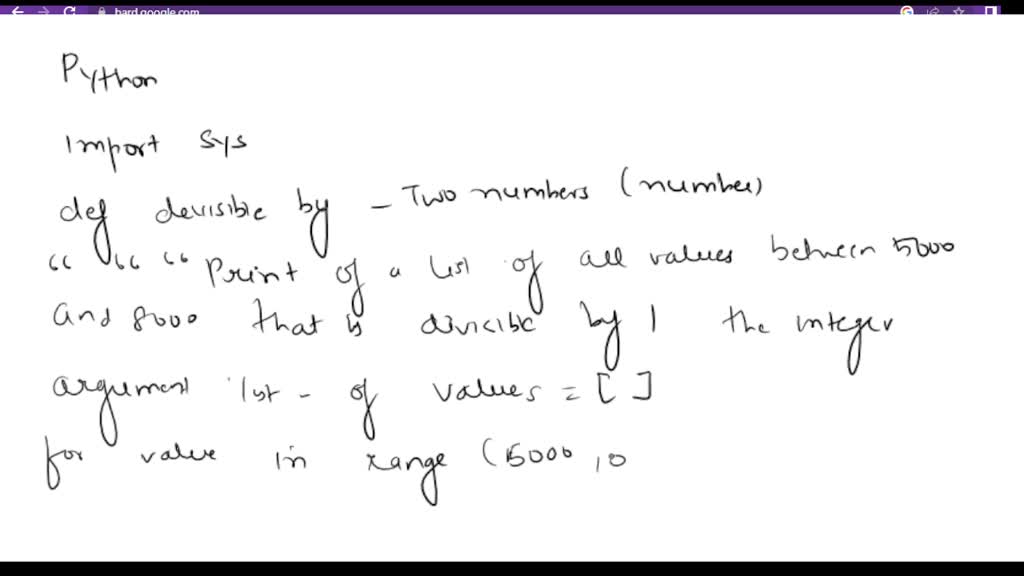 bard.google.com
Python
import sys
def devisible by - Two numbers (number)
" " " Print of a list of all values between 5000
and 8000 that is divicible by 1 the integer
argument list - of values = [ ]
for value in range (5000 , 0